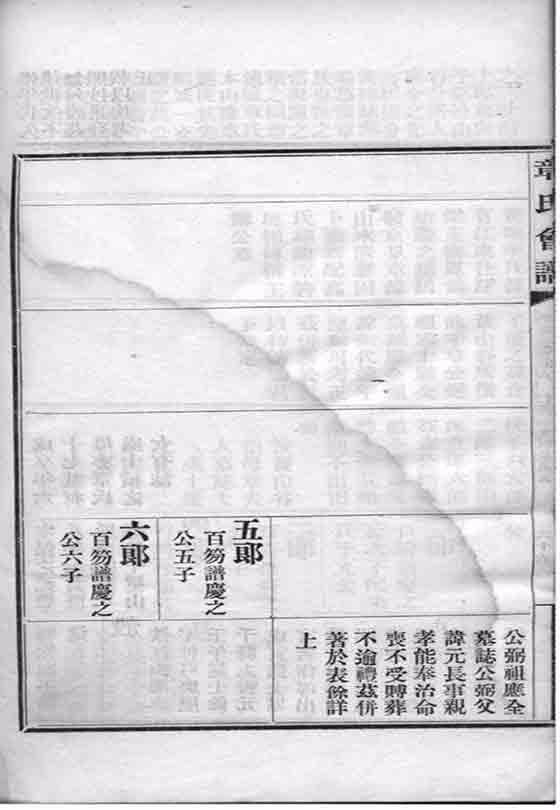 章氏會譜
公弼祖應全
墓誌公弼父
諱元長事親
孝能奉治命
喪不受賻葬
不逾禮茲併
著於表餘詳
上
五郎
百笏譜慶之
公五子
六郎
百笏譜慶之
公六子